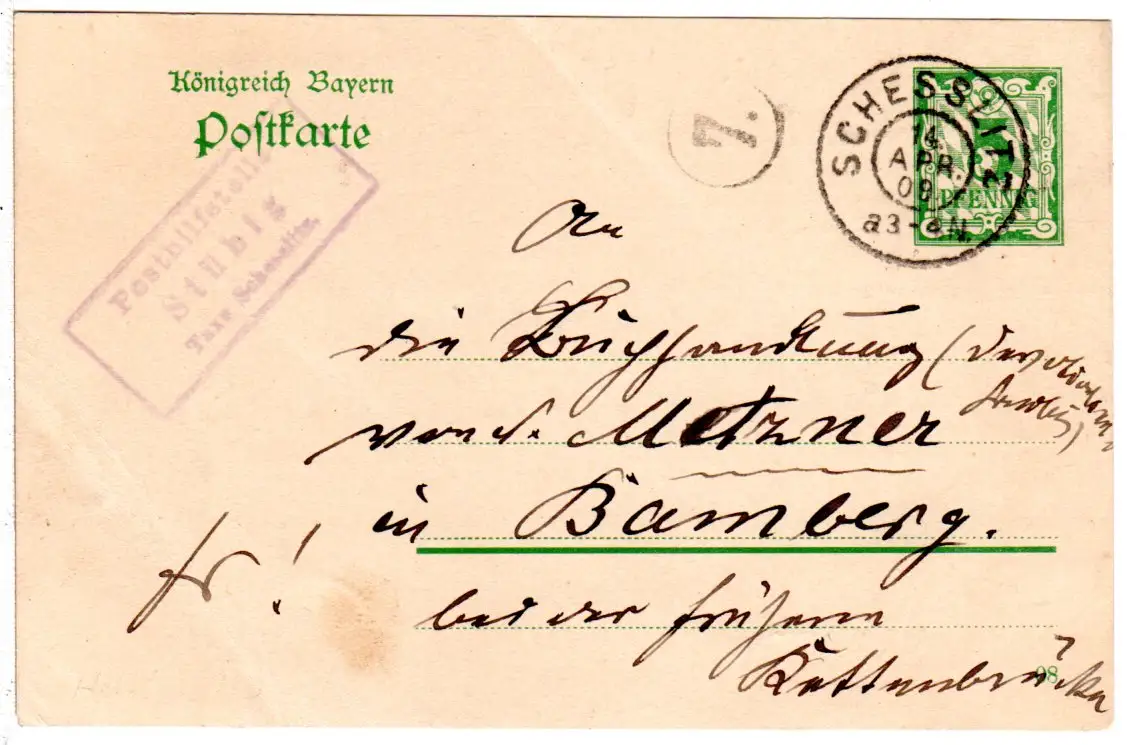 Königreich Bayern
Postkarte
Posthilfstelle
Stübig
Taxe Schesslitz.
7.
SCHESSLITZ
14.
APR.
09
5
PFENNIG
An
die Buchhandlung (
von d. Metzner
in Bamberg.
fr!
bei der frühern
Kettenbrücke
08